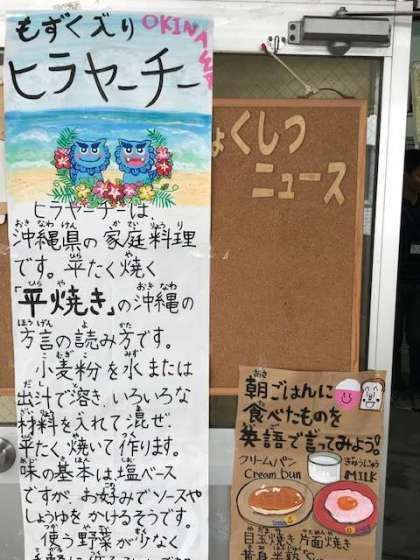 もずく入り
OKINAWA
ヒラヤーチー
ヒラヤーチーは
沖縄県の家庭料理
です。平たく焼く
「平焼き」の沖縄の
方言の読み方です。
小麦粉を水または
出汁で溶き、いろいろな
材料を入れて混ぜ、
平たく焼いて作ります。
味の基本は塩ベース
ですが、お好みでソースや
しょうゆをかけるそうです。
使う野菜が少なく
ょくしつ
ニュース
朝ごはんに
食べたものを
英語で言ってみよう。
クリームパン
Cream bun
ぎゅうにゅう
MILK
目玉焼き 片面焼き
黄身半熟